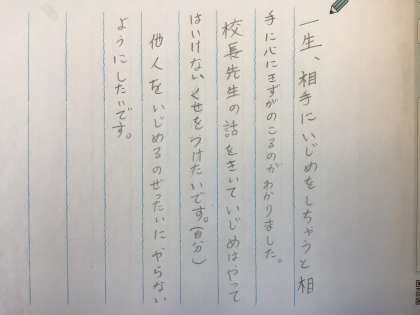 一生、相手にいじめをしちゃうと相
手に心にきずがのこるのがわかりました。
校長先生の話をきいていじめはやって
はいけないくせをつけたいです。(自分)
他人をいじめるのぜったいにやらない
ようにしたいです。